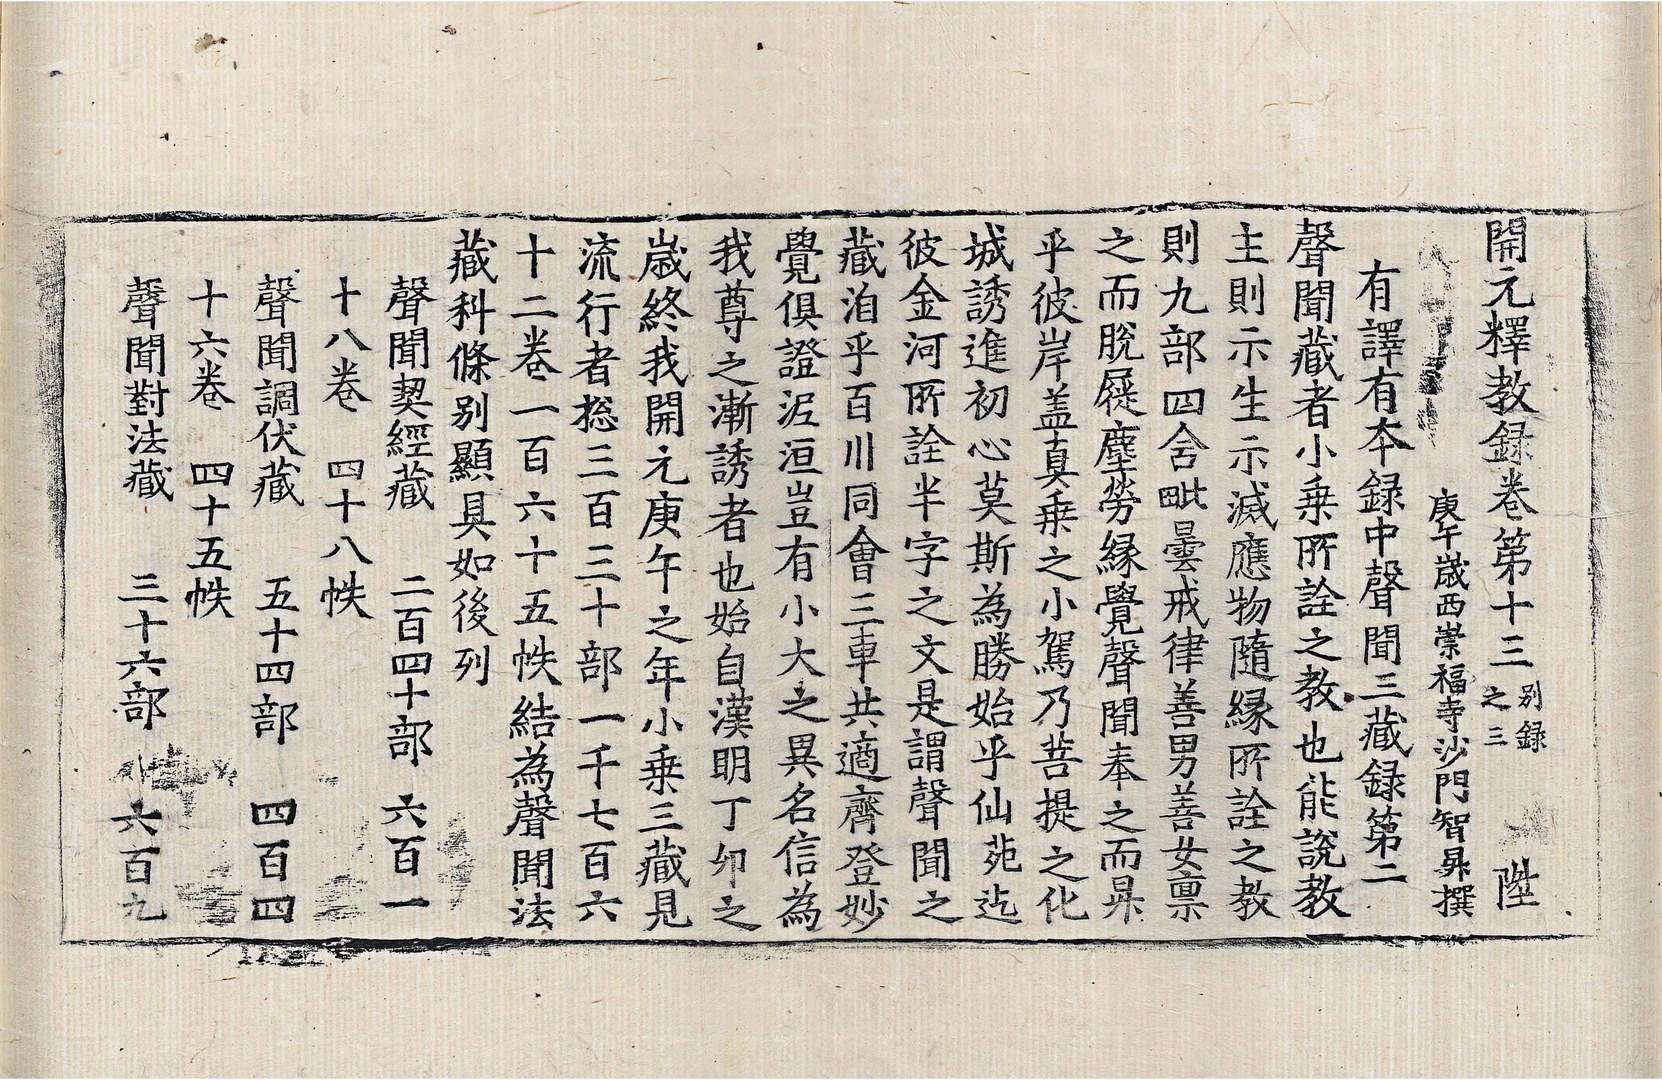 開元釋教録卷第十三 别録之三 陞
庚午歲西崇福寺沙門智昇撰
有譯有夲録中聲聞三藏録第二
聲聞藏者小乗所詮之教也能說教
主則示生示滅應物隨緣所詮之教
則九部四含毗曇戒律善男善女禀
之而脫屣塵勞緣覺聲聞奉之而昇
乎彼岸盖真乗之小駕乃菩提之化
城誘進初心莫斯為勝始乎仙苑迄
彼金河所詮半字之文是謂聲聞之
藏洎乎百川同會三車共適齊登妙
覺俱證泥洹豈有小大之異名信為
我尊之漸誘者也始自漢明丁卯之
歲終我開元庚午之年小乗三藏見
流行者捴三百三十部一千七百六
十二卷一百六十五帙結為聲聞法
藏科條别顯具如後列
聲聞契經藏 二百四十部 六百一
十八卷 四十八帙
聲聞調伏藏 五十四部 四百四
十六卷 四十五帙
聲聞對法藏 三十六部 六百九